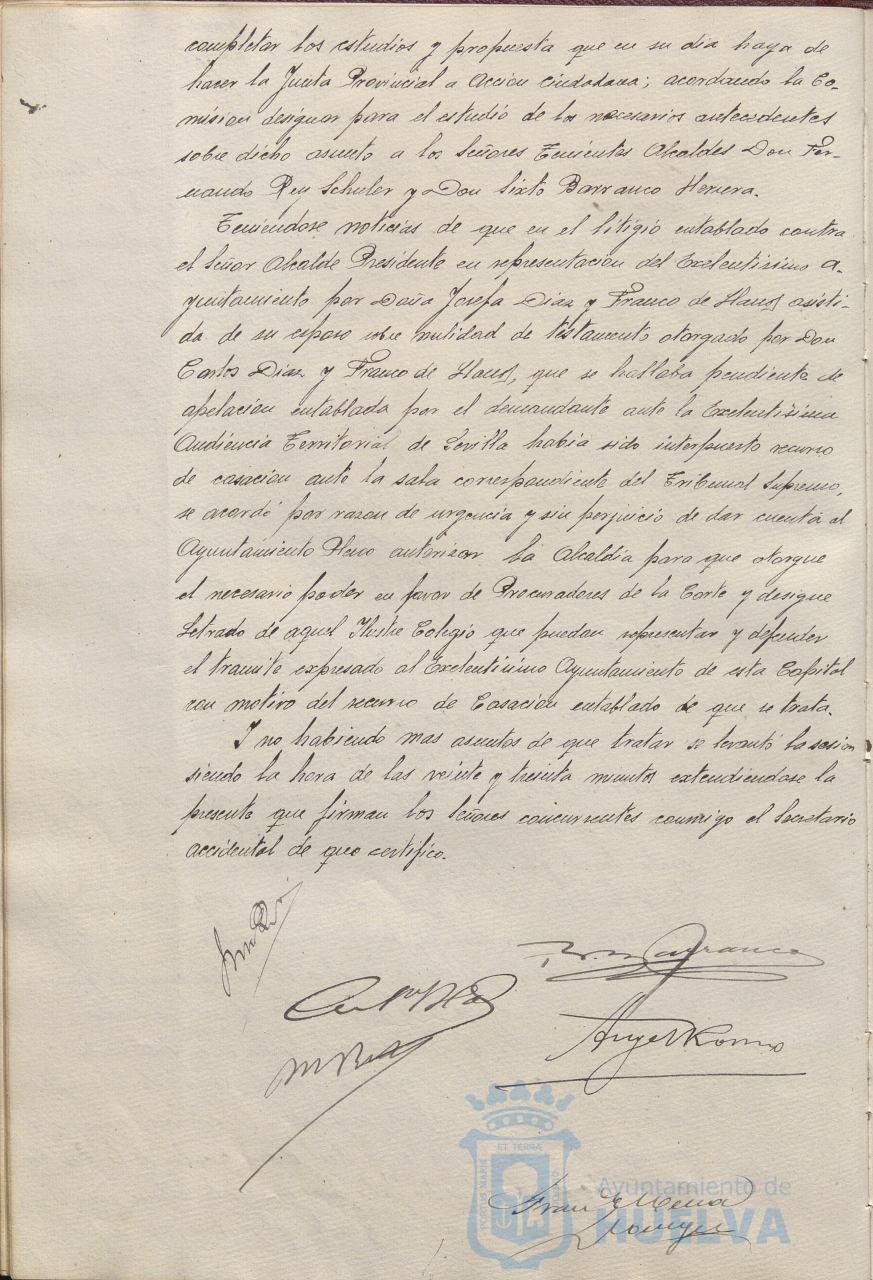 completar los estudios y propuesta que en su dia haya de
hacer la Junta Provincial a Accion ciudadana; acordando la Co-
mision designar para el estudio de los necesarios antecedentes
sobre dicho asunto a los Señores Tenientes Alcaldes Don Fer-
nando Rey Schuler y Don Sixto Barranco Herrera.
Teniendose noticias de que en el litigio entablado contra
el Señor Alcalde Presidente en representacion del Exelentisimo A-
yuntamiento por Doña Josefa Diaz y Franco de Llanos asisti-
da de su esposo sobre nulidad de testamento otorgado por Don
Carlos Diaz y Franco de Llanos, que se hallaba pendiente de
apelacion entablada por el demandante ante la Exelentisima
Audiencia Territorial de Sevilla habia sido interpuesto recurso
de casacion ante la sala correspondiente del Tribunal Supremo,
se acordó por razon de urgencia y sin perjuicio de dar cuenta al
Ayuntamiento Pleno autorizar la Alcaldia para que otorgue
el necesario poder en favor de Procuradores de la Corte y designe
Letrado de aquel Ilustre Colegio que puedan representar y defender
el tramite expresado al Exelentisimo Ayuntamiento de esta Capital
con motivo del recurso de Casacion entablado de que se trata.
I no habiendo mas asuntos de que tratar se levantó la sesion
siendo la hora de las veinte y treinta minutos extendiendose la
presente que firman los Señores concurrentes conmigo el Secretario
accidental de que certifico.
Barranco
Angel Romo
ET TERRA
PORTUS MARIS
Ayuntamiento de
HUELVA
Fran Mena